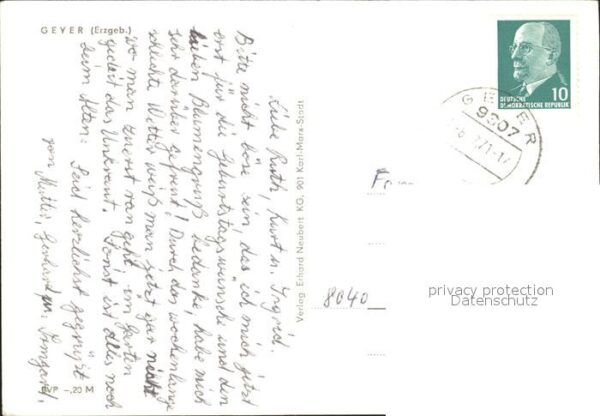 GEYER (Erzgeb.)
Liebe Ruth, Kurt u. Ingrid.
Bitte nicht böse sein, das ich mich jetzt
erst für die Geburtstagswünsche und den
lieben Blumengruß bedanke, habe mich
sehr darüber gefreut! Durch das wochenlange
schlechte Wetter weiß man jetzt gar nicht
wo man zuerst ran geht, im Garten
gedeit das Unkraut. Sonst ist alles noch
beim Alten. Seid herzlichst gegrüßt
von Mutter, Gerhard u. Irmgard.
EVP -,20 M
Verlag Erhard Neubert KG, 901 Karl-Marx-Stadt
10
DEUTSCHE
DEMOKRATISCHE REPUBLIK
GEYER
9307
8040
privacy protection
Datenschutz